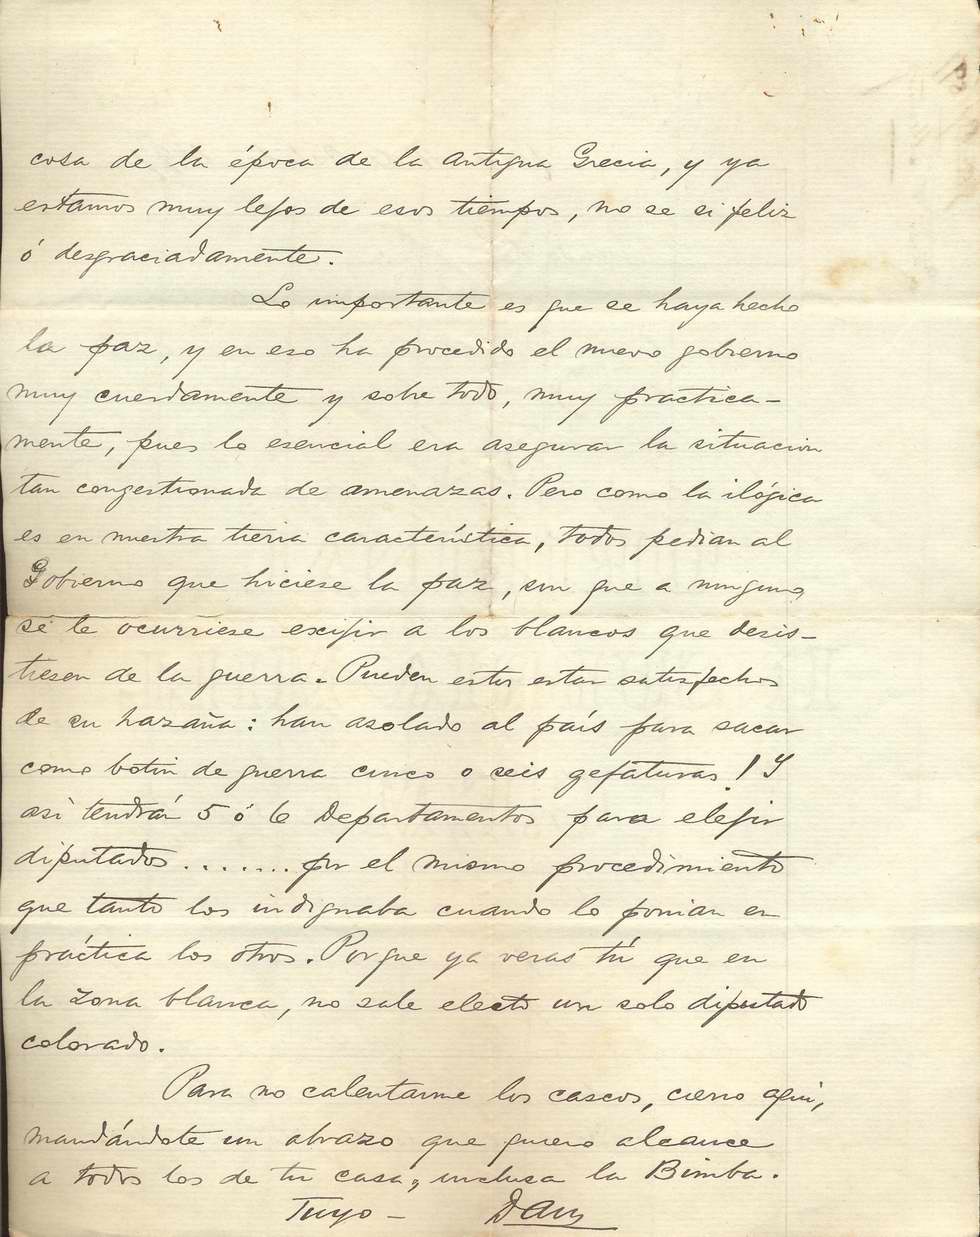 cosa de la época de la Antigua Grecia, y ya
estamos muy lejos de esos tiempos, no se si feliz
ó desgraciadamente.
Lo importante es que se haya hecho
la paz, y en eso ha procedido el nuevo gobierno
muy cuerdamente y sobre todo, muy practica-
mente, pues lo esencial era asegurar la situacion
tan congestionada de amenazas. Pero como la ilógica
es en nuestra tierra característica, todos pedian al
Gobierno que hiciese la paz, sin que a ninguno
se le ocurriese exijir a los blancos que desis-
tiesen de la guerra. Pueden estos estar satisfechos
de su hazaña: han asolado al país para sacar
como botin de guerra cinco o seis gefaturas! Y
asi tendrán 5 ó 6 Departamentos para elejir
diputados ....... por el mismo procedimiento
que tanto los indignaba cuando lo ponian en
práctica los otros. Porque ya veras tú que en
la zona blanca, no sale electo un solo diputado
colorado.
Para no calentarme los cascos, cierro aqui,
mandándote un abrazo que quiero alcance
a todos los de tu casa, inclusa la Bimba.
Tuyo -